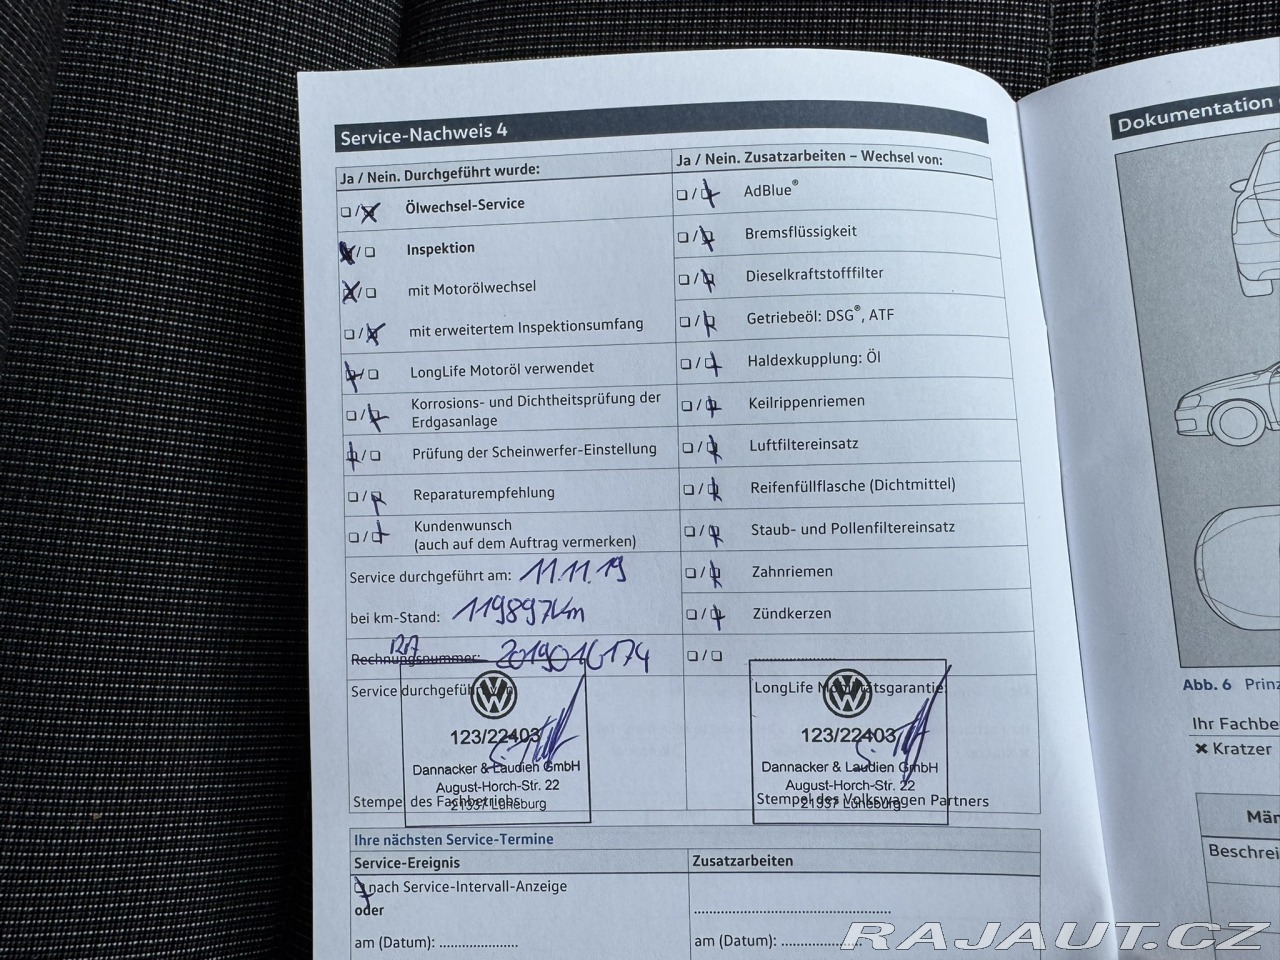 Service-Nachweis 4
Ja / Nein. Durchgeführt wurde:
❏ / ❏ Ölwechsel-Service
❏ / ❏ Inspektion
❏ / ❏ mit Motorölwechsel
❏ / ❏ mit erweitertem Inspektionsumfang
❏ / ❏ LongLife Motoröl verwendet
❏ / ❏ Korrosions- und Dichtheitsprüfung der
Erdgasanlage
❏ / ❏ Prüfung der Scheinwerfer-Einstellung
❏ / ❏ Reparaturempfehlung
❏ / ❏ Kundenwunsch
(auch auf dem Auftrag vermerken)
Service durchgeführt am: 11.11.19
bei km-Stand: 119897km
Rechnungsnummer: 2019016174
Service durchgeführt von
123/22403
Dannacker & Laudien GmbH
August-Horch-Str. 22
21337 Lüneburg
Stempel des Fachbetriebs
Ja / Nein. Zusatzarbeiten – Wechsel von:
❏ / ❏ AdBlue®
❏ / ❏ Bremsflüssigkeit
❏ / ❏ Dieselkraftstofffilter
❏ / ❏ Getriebeöl: DSG®, ATF
❏ / ❏ Haldexkupplung: Öl
❏ / ❏ Keilrippenriemen
❏ / ❏ Luftfiltereinsatz
❏ / ❏ Reifenfüllflasche (Dichtmittel)
❏ / ❏ Staub- und Pollenfiltereinsatz
❏ / ❏ Zahnriemen
❏ / ❏ Zündkerzen
❏ / ❏
LongLife Mobilitätsgarantie
123/22403
Dannacker & Laudien GmbH
August-Horch-Str. 22
21337 Lüneburg
Stempel des Volkswagen Partners
Ihre nächsten Service-Termine
Service-Ereignis
❏ nach Service-Intervall-Anzeige
oder
am (Datum): ....................
Zusatzarbeiten
am (Datum): ....................
Dokumentation
Abb. 6 Prinz
Ihr Fachbe
✖ Kratzer
Män
Beschrei
RAJAUT.CZ